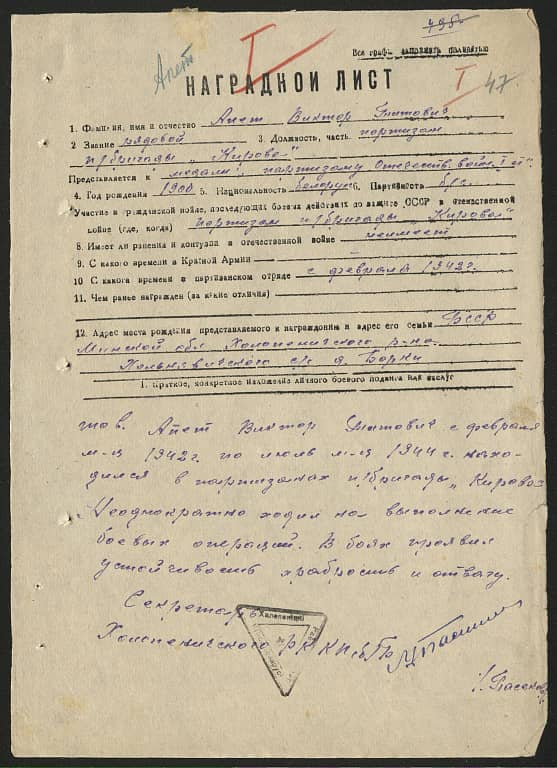 795
Все графы заполнять полностью
Апет
I
НАГРАДНОЙ ЛИСТ
I 47
1. Фамилия, имя и отчество Апет Виктор Титович
2 Звание рядовой 3. Должность, часть партизан
п/бригады „Кирова"
Представляется к медали „партизану Отечеств. войн. I ст"
4. Год рождения 1900 5. Национальность белорус 6. Партийность б/п
Участие в гражданской войне, последующих боевых действиях по защите СССР в отечественной
войне (где, когда) партизан п/бригады „Кирова"
8. Имеет ли ранения и контузии в отечественной войне не имеет
9. С какого времени в Красной Армии
10 С какого времени в партизанском отряде с февраля 1942 г.
11. Чем ранее награжден (за какие отличия)
12. Адрес места рождения представляемого к награждению и адрес его семьи БССР
Минской обл Холопеничского р-на
с/с д. Борки
I. Краткое, конкретное изложение личного боевого подвига или заслуг
тов. Апет Виктор Титович с февраля
м-ца 1942 г. по июль м-ц 1944 г. нахо-
дился в партизанах п/бригады „Кирова
Неоднократно ходил на выполнение
боевых операций. В боях проявил
устойчивость храбрость и отвагу.
Секретарь
Холопеничского РК КП(б)Б